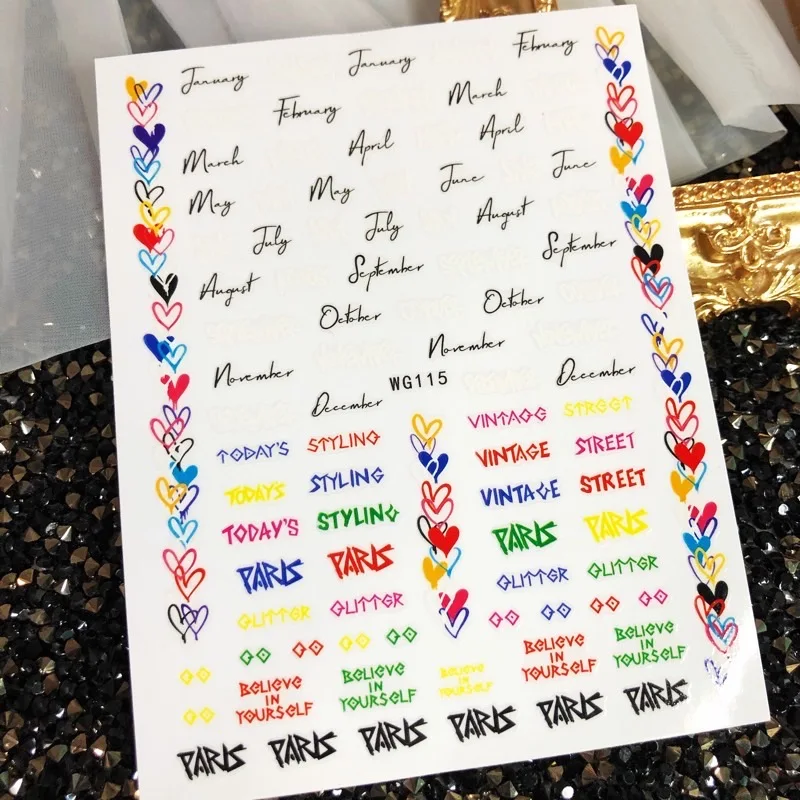 January January February
February March
March April April
May May June June
July July August
August September September
October October
November November
WG115
December December
VINTAGE STREET
TODAY'S STYLING VINTAGE STREET
TODAY'S STYLING VINTAGE STREET
TODAY'S STYLING PARIS PARIS
PARIS PARIS GLITTER GLITTER
GLITTER GLITTER GO GO GO GO
GO GO GO GO
GO
GO
BELIEVE
IN
YOURSELF
BELIEVE
IN
YOURSELF
BELIEVE
IN
YOURSELF
BELIEVE
IN
YOURSELF
BELIEVE
IN
YOURSELF
PARIS PARIS PARIS PARIS PARIS PARIS